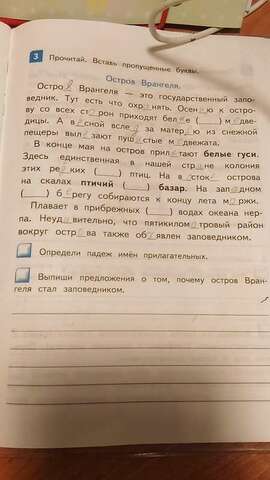 3 Прочитай. Вставь пропущенные буквы.
Остров Врангеля.
Остров Врангеля — это государственный запо-
ведник. Тут есть что охранять. Осенью к остро-
ву со всех сторон приходят белые (___) медве-
дицы. А весной вслед за матерью из снежной
пещеры вылезают пушистые медвежата.
В конце мая на остров прилетают белые гуси.
Здесь единственная в нашей стране колония
этих редких (___) птиц. На восток_ острова
на скалах птичий (___) базар. На западном
(___) берегу собираются к концу лета моржи.
Плавает в прибрежных (___) водах океана нер-
па. Неудивительно, что пятикилометровый район
вокруг острова также объявлен заповедником.
Определи падеж имён прилагательных.
Выпиши предложения о том, почему остров Вран-
геля стал заповедником.